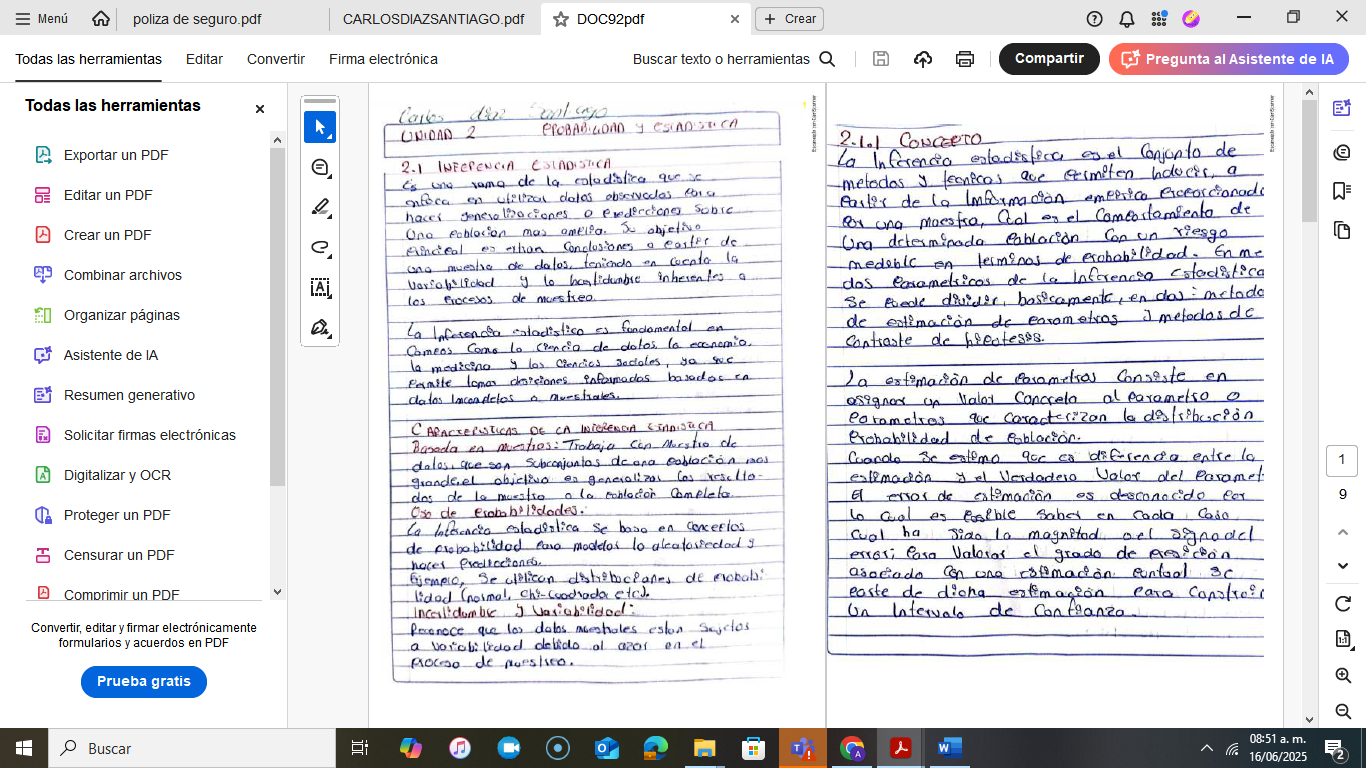 Menú
poliza de seguro.pdf
CARLOSDIAZSANTIAGO.pdf
DOC92pdf
Crear
Todas las herramientas
Editar
Convertir
Firma electrónica
Buscar texto o herramientas
Compartir
Pregunta al Asistente de IA
Todas las herramientas
Exportar un PDF
Editar un PDF
Crear un PDF
Combinar archivos
Organizar páginas
Asistente de IA
Resumen generativo
Solicitar firmas electrónicas
Digitalizar y OCR
Proteger un PDF
Censurar un PDF
Comprimir un PDF
Convertir, editar y firmar electrónicamente
formularios y acuerdos en PDF
Prueba gratis
Carlos diaz Santiago
UNIDAD 2 PROBABILIDAD Y ESTADISTICA
2.1 INFERENCIA ESTADISTICA
Es una rama de la estadistica que se
enfoca en utilizar datos observados para
hacer generalizaciones o Predicciones Sobre
Una Poblacion mas amplia. Su objetivo
Principal es extraer Conclusiones a partir de
una muestra de datos, teniendo en cuenta la
Variabilidad y la Incertidumbre inherentes a
los Procesos de muestreo.
La Inferencia estadistica es fundamental en
Campos Como la Ciencia de datos, la economia,
la medicina y las Ciencias Sociales, ya que
Permite tomar desiciones informadas basadas en
datos Incompletos o muestrales.
CARACTERISTICAS DE LA INFERENCIA ESTADISTICA
Basada en muestras: Trabaja Con Muestra de
datos, que son Subconjuntos de una Población mas
grande, el objetivo es generalizar los resulta-
dos de la muestra a la Población Completa.
Uso de Probabilidades:
La Inferencia estadistica Se basa en Conceptos
de Probabilidad Para modelos la aleatoriedad y
hacer Predicciones.
Ejemplo, Se utilizan distribuciones de Probabi-
lidad (normal, chi-cuadrada etc).
Incertidumbre y Variabilidad:
Reconoce que los datos muestrales estan Sujetos
a variabilidad debido al azar en el
Proceso de muestreo.
2.1.1 CONCEPTO
La Inferencia estadistica es el Conjunto de
metodos y tecnicas que Permiten Inducir, a
Partir de la Información empirica Proporcionada
Por una muestra, Cual es el Comportamiento de
Una determinada Población Con un riesgo
medible en terminos de Probabilidad. En me
dos Parametricos de la Inferencia Estadistica
Se Puede dividir, basicamente, en dos: metodo
de estimación de Parametros y metodos de
Contraste de hipotesis.
La estimación de Parametros Consiste en
asignar un Valor Concreto al Parametro o
Parametros que Caracterizan la distribución
Probabilidad de Población.
Cuando Se estima que es diferencia entre la
estimación y el Verdadero Valor del Paramet
El error de estimación es desconocido Por
lo Cual es Posible Saber en Cada Caso,
Cual ha Sido la magnitud o el Signo del
error; Para Valorar el grado de Presición
asociado Con una estimación Puntual Se
Parte de dicha estimación Para Construir
Un Intervalo de Confianza.
1
9
Buscar
08:51 a. m.
16/06/2025
2